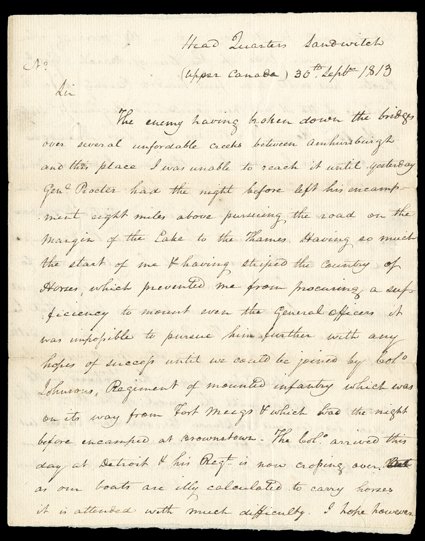 Head Quarters Sandwitch
(Upper Canada) 30th Septr 1813
No
Sir
The enemy having broken down the bridges
over several unfordable creeks between Amhursburgh
and this place I was unable to reach it until yesterday
Genl Procter had the night before left his encamp
ment eight miles above pursueing the road on the
margin of the Lake to the Thames. Having so much
the start of me & having striped the Country of
Horses, which prevented me from procuring a suf
ficiency to mount even the General officers it
was impossible to pursue him further with any
hopes of success until we could be joined by Colo
Johnsons, Regiment of mounted infantry which was
on its way from Fort Meegs & which had the night
before encamped at Browntown. The Colo arrived this
day at Detroit & his Regt is now crossing over
as our boats are illy calculated to carry horses
it is attended with much difficulty. I hope however